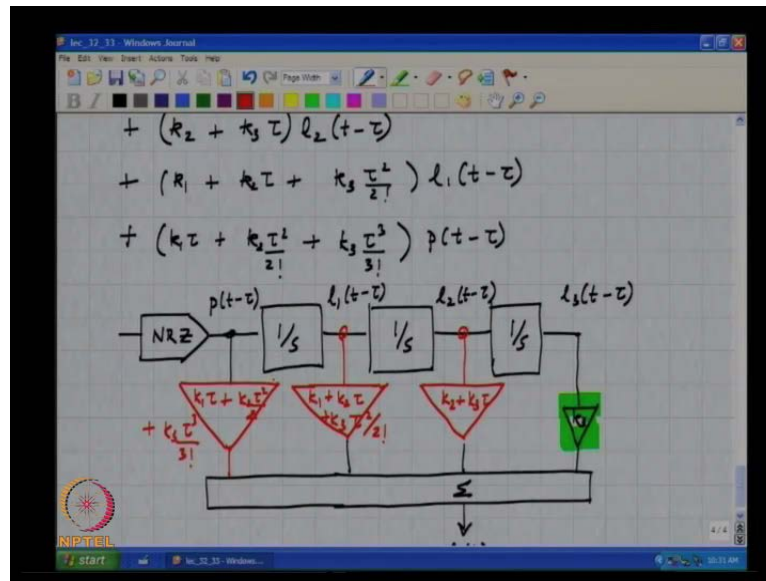 lec_32_33 - Windows Journal
File Edit View Insert Actions Tools Help
Page Width
B I
+ (k₂ + k₃ τ) l₂ (t-τ)
+ (k₁ + k₂ τ + k₃ τ²/2!) l₁ (t-τ)
+ (k₁ τ + k₂ τ²/2! + k₃ τ³/3!) p(t-τ)
p(t-τ) l₁(t-τ) l₂(t-τ) l₃(t-τ)
NRZ 1/s 1/s 1/s
k₁τ + k₂τ²/2 k₁+k₂τ k₂+k₃τ k₃
+ k₃τ³/3! +k₃τ²/2!
Σ
4/4
NPTEL
start lec_32_33 - Windows... 10:31 AM